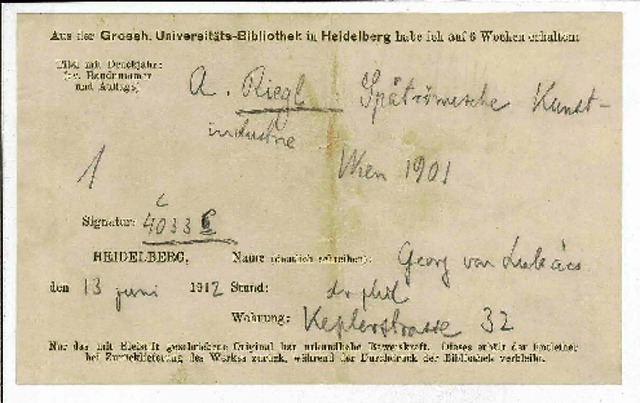 Aus der Grossh. Universitäts-Bibliothek in Heidelberg habe ich auf 6 Wochen erhalten:
Titel mit Druckjahr:
(ev. Bandnummer
und Auflage)
A. Riegl Spätrömische Kunst-
industrie
1 Wien 1901
Signatur: C 4033
HEIDELBERG, Name (deutlich schreiben): Georg von Lukács
den 13 juni 1912 Stand: dr phil
Wohnung: Keplerstrasse 32
Nur das mit Bleistift geschriebene Original hat urkundliche Beweiskraft. Dieses erhält der Entleiher
bei Zurücklieferung des Werkes zurück, während der Durchdruck der Bibliothek verbleibt.